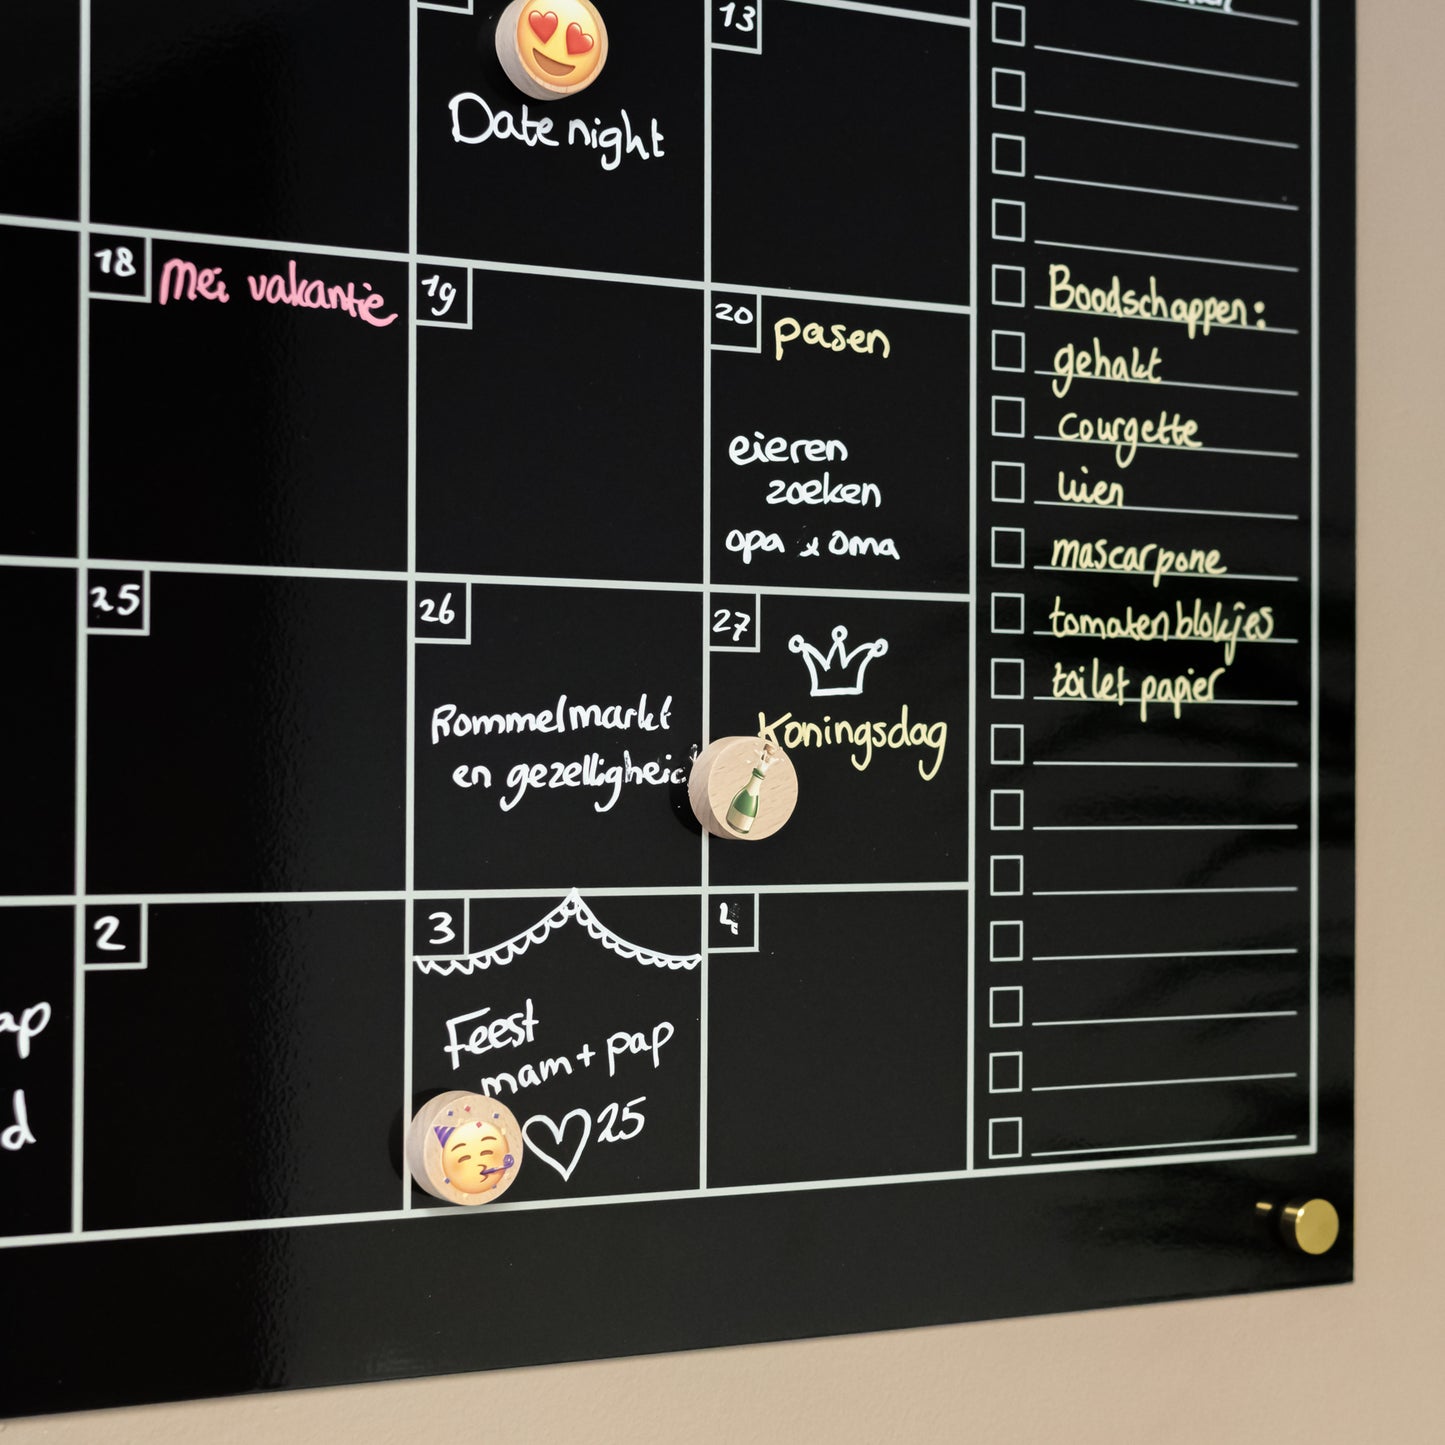 13
Date night
18
Mei vakantie
19
20
pasen
eieren
zoeken
opa & oma
25
26
Rommelmarkt
en gezelligheid
27
Koningsdag
2
3
Feest
mam + pap
25
4
ap
d
Boodschappen:
gehakt
courgette
uien
mascarpone
tomatenblokjes
toilet papier